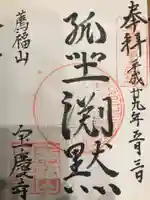 奉拝 平成廿九年五月三日
孤坐淵黙
薦福山
宝慶寺